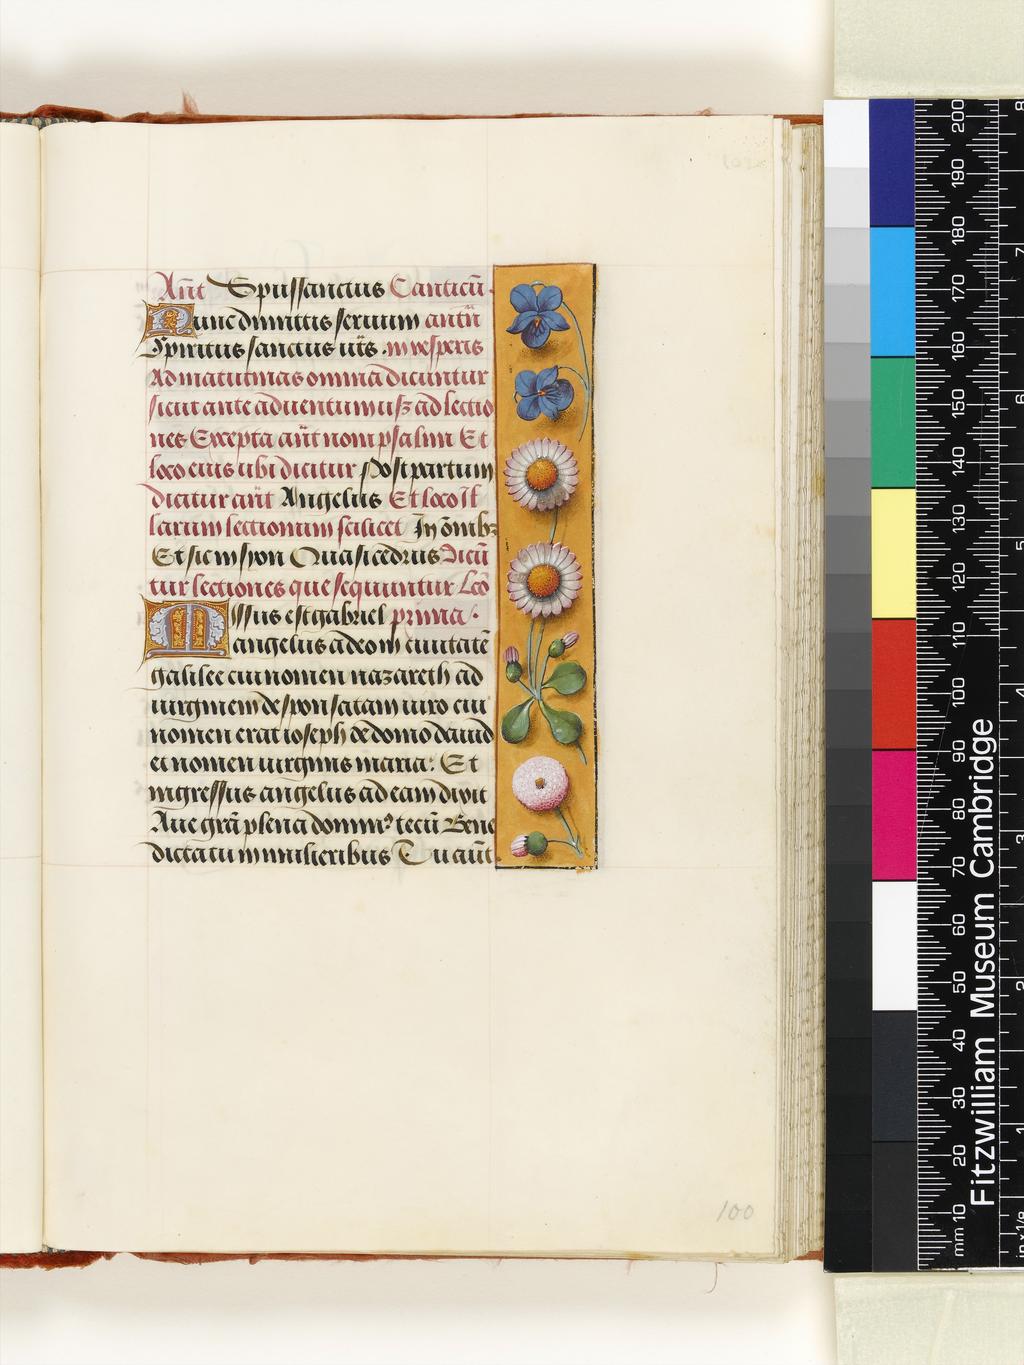 Añt Spussanctus Canticū.
Nunc dimittis seruum antū
Spiritus sanctus uts. in vesperis
Ad matutinas omnia dicuntur
sicut ante aduentum usq ad lectio
nes Excepta añt non psalm Et
loco eius ubi dicitur Post partum
dicatur añt Angelus Et loco Il
larum lectionum scilicet In omib
Et sic in syon Quasi cedrus Dicū
tur lectiones que sequuntur Lcō
Missus est gabriel prima.
angelus a deo in ciuitatē
galilee cui nomen nazareth ad
uirginem desponsatam uiro cui
nomen erat ioseph de domo dauid
et nomen uirginis maria: Et
ingressus angelus ad eam dixit
Aue grā plena domin⁹ tecū Bene
dicta tu in mulieribus Tu aūt
100
Fitzwilliam Museum Cambridge
mm 10 20 30 40 50 60 70 80 90 100 110 120 130 140 150 160 170 180 190 200
in x 1/8 1 2 3 4 5 6 7 8